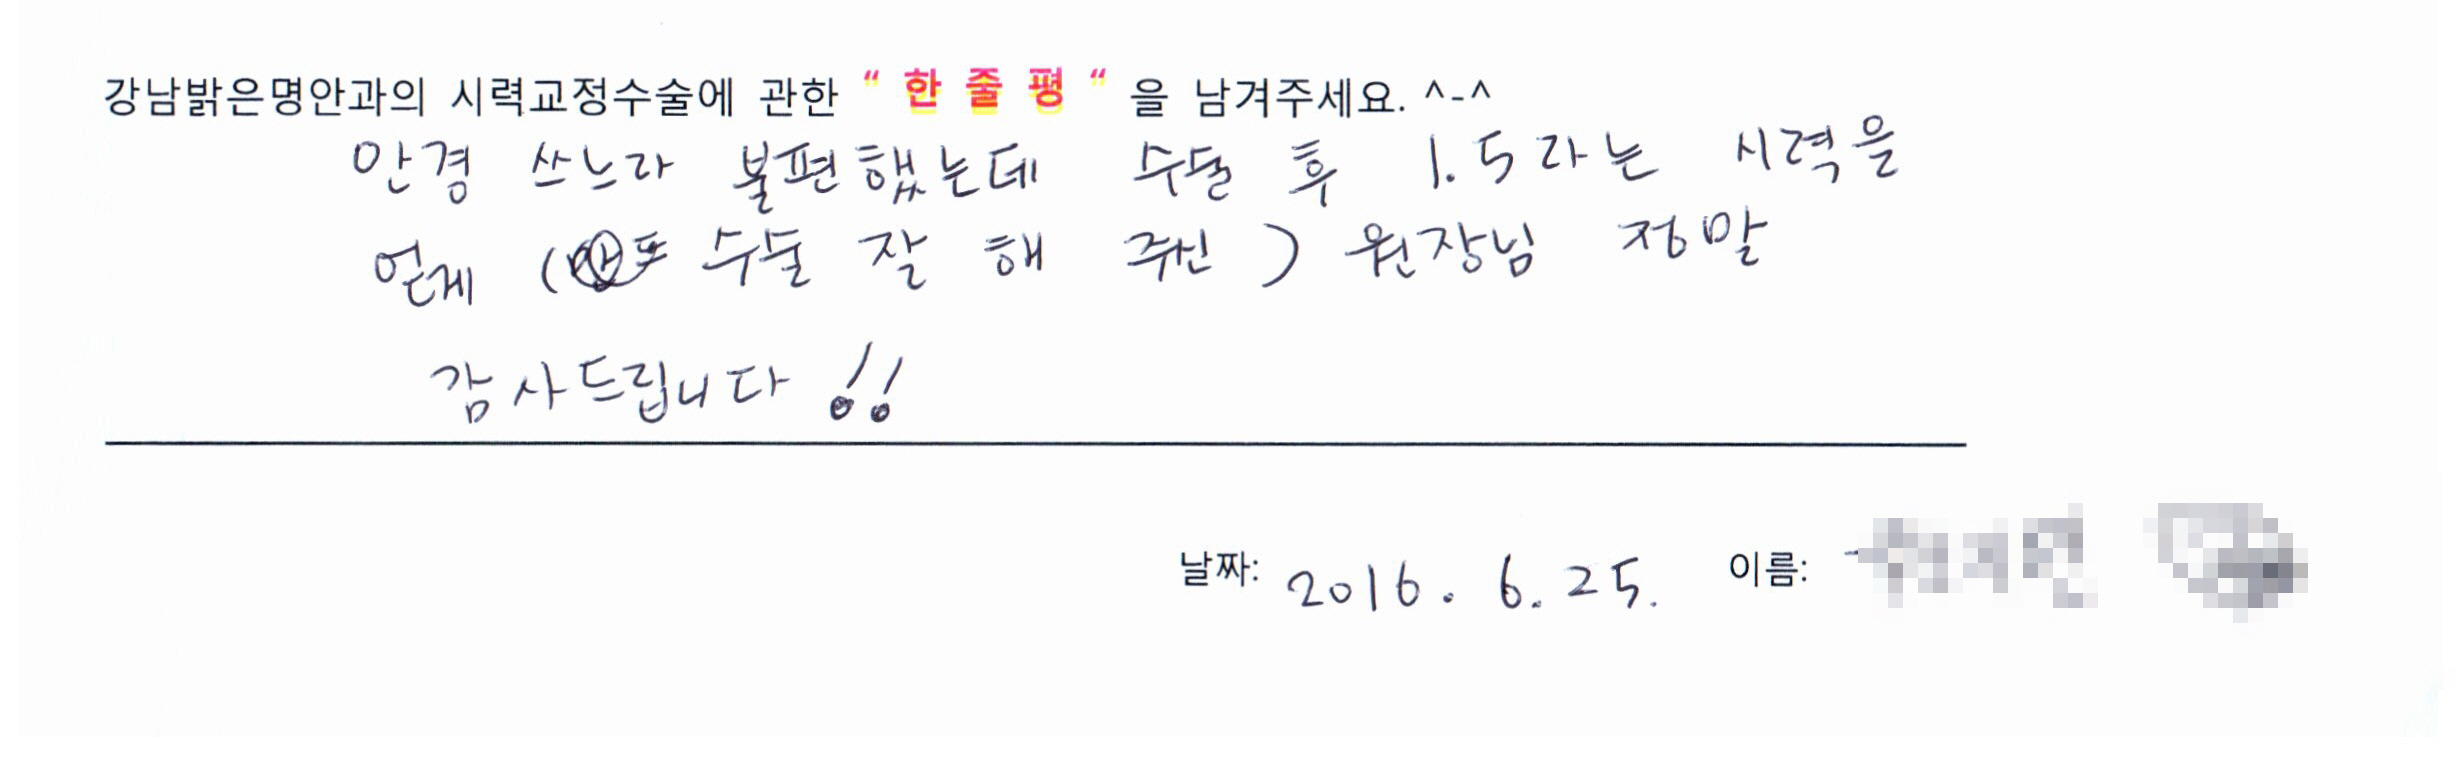 강남밝은명안과의 시력교정수술에 관한 “ 한 줄 평 “ 을 남겨주세요. ^-^
안경 쓰느라 불편했는데 수술 후 1.5라는 시력을
얻게 ( 수술 잘 해 주신 ) 원장님 정말
감사드립니다 !!
날짜: 2016. 6. 25. 이름: